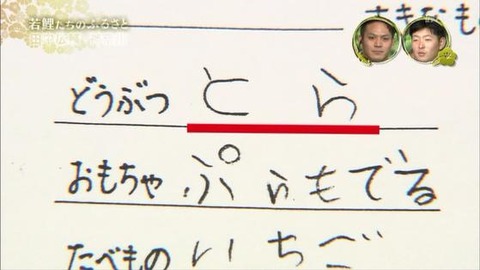 若鯉たちのふるさと
すきなもの
どうぶつ とら
おもちゃ ぷらもでる
たべもの いちご